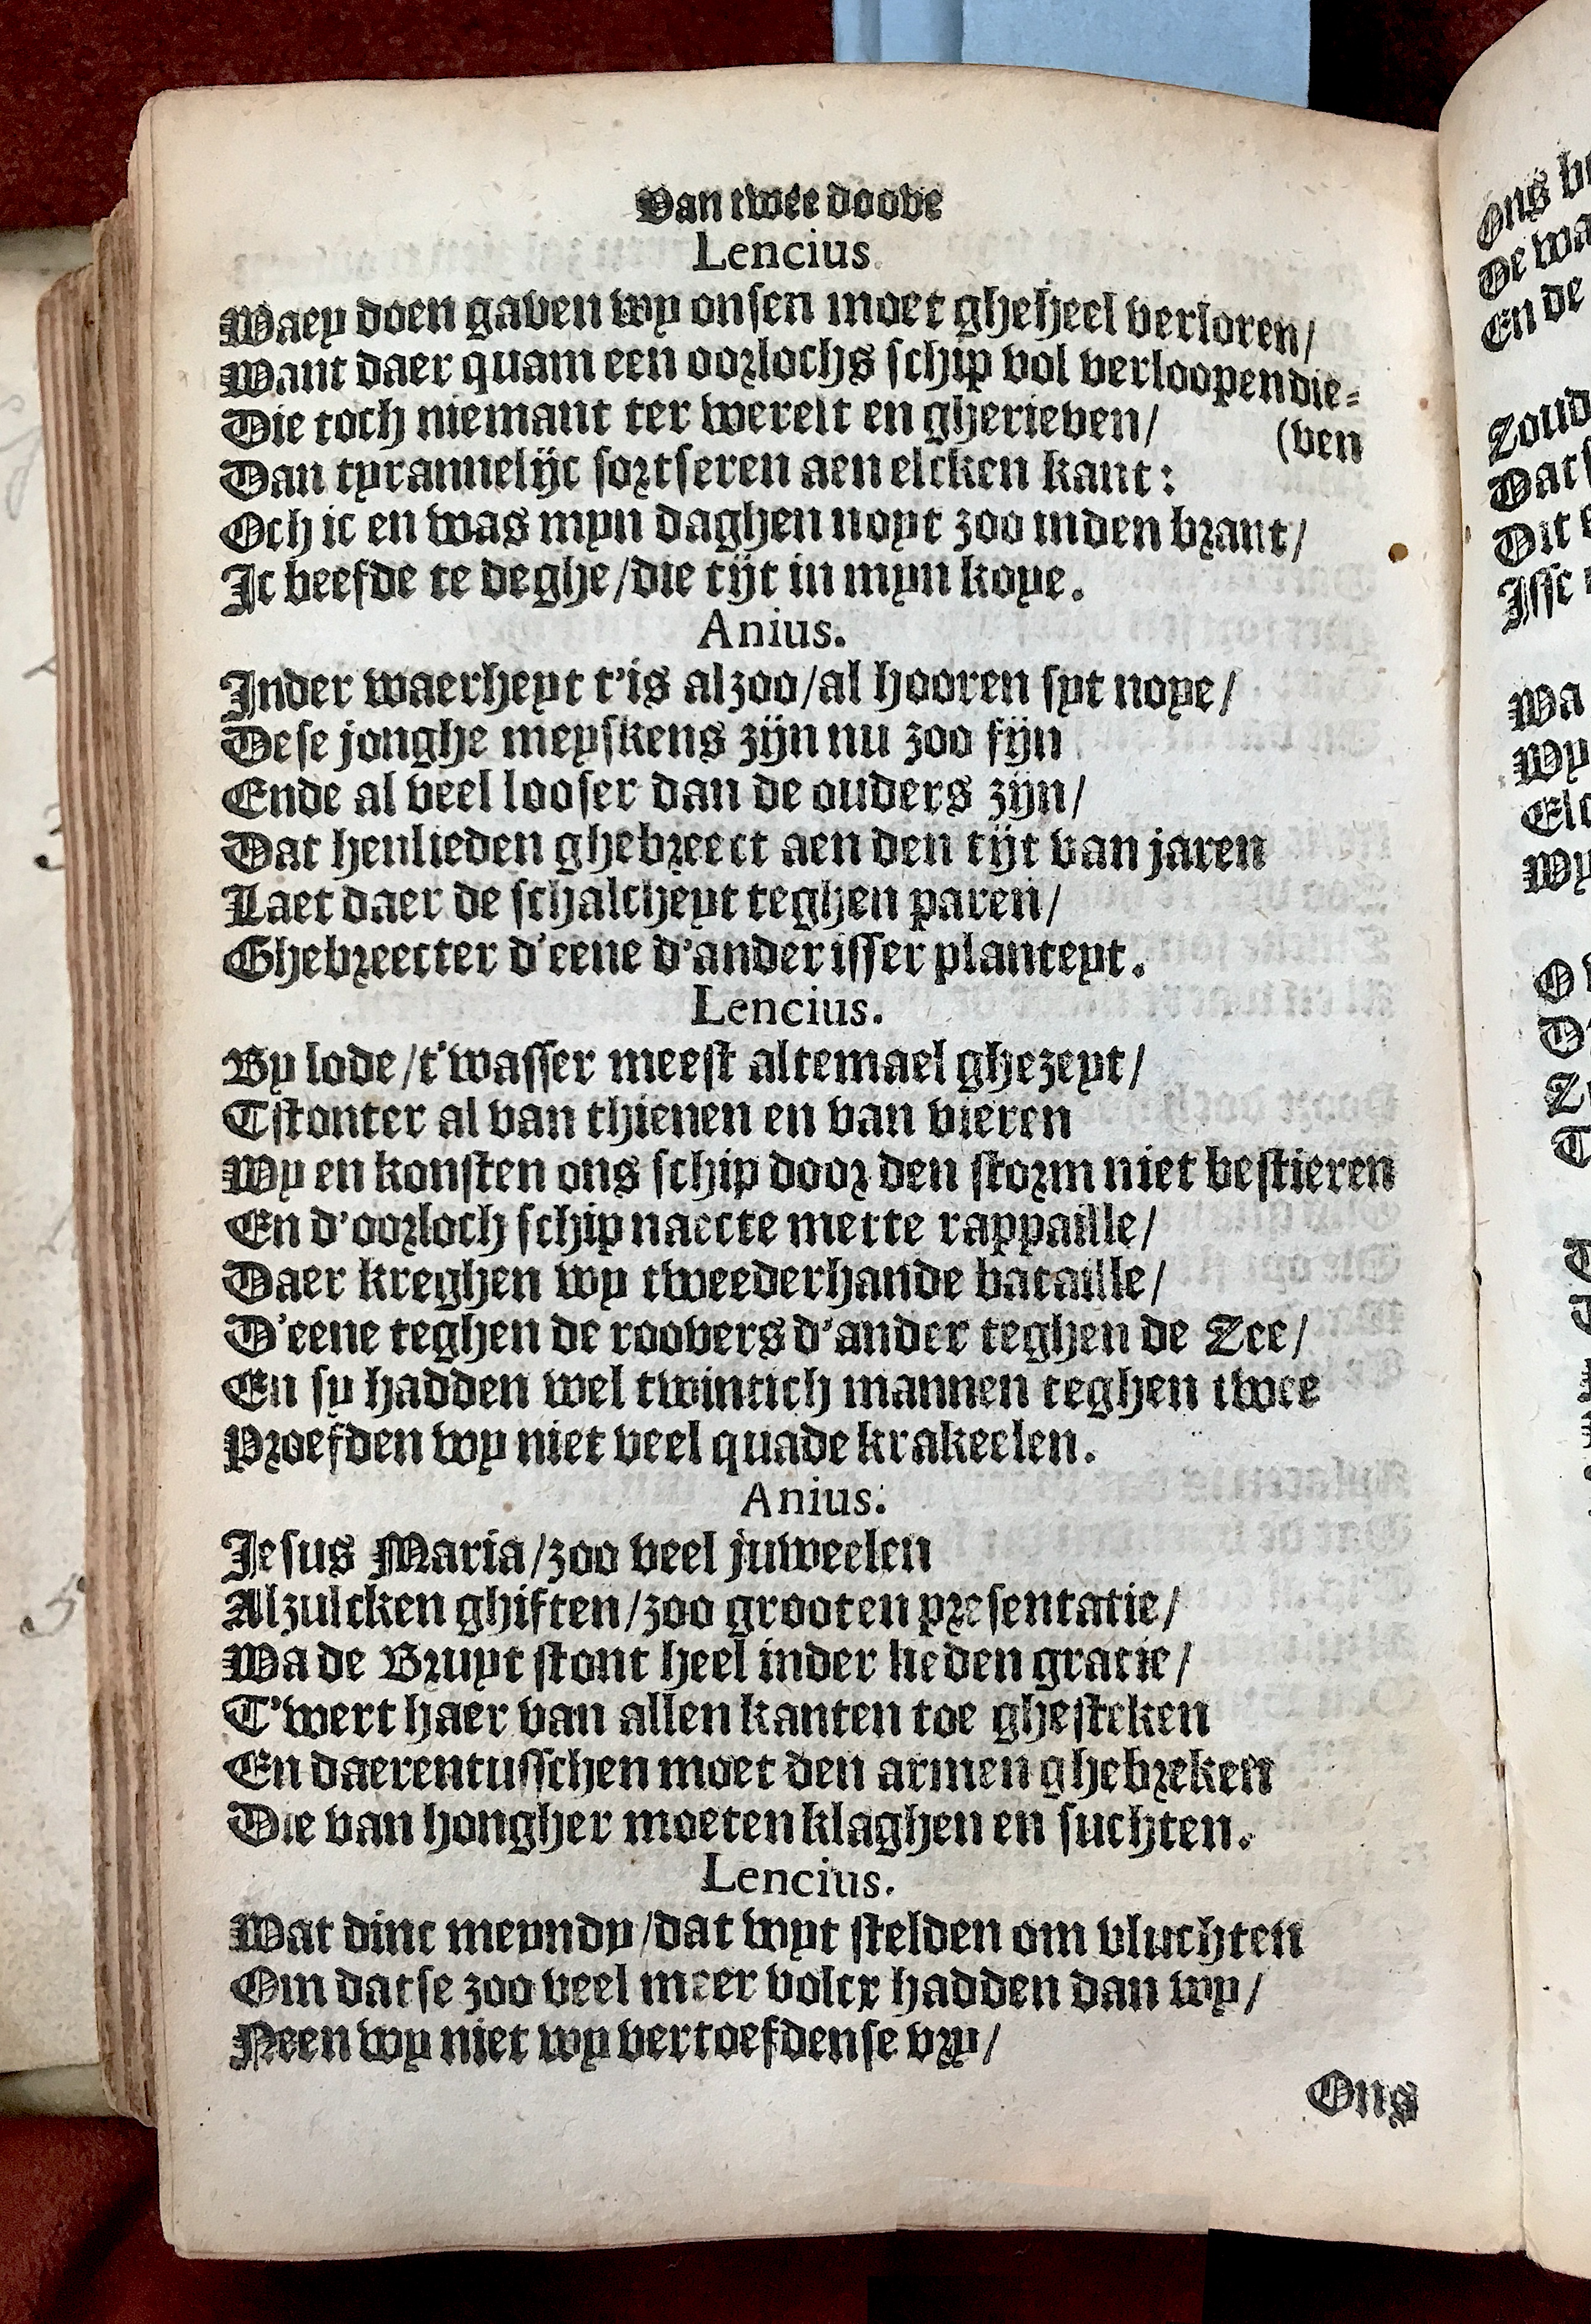 Van twee doove
Lencius.
Waey doen gaven wy onsen moet gheheel verloren/
Want daer quam een oorlochs schip vol verloopen die-
Die toch niemant ter werelt en gherieven/ (ven
Dan tyrannelijc fortseren aen elcken kant:
Och ic en was myn daghen noyt zoo inden brant/
Ic beefde te deghe/die tijt in myn koye.
Anius.
Inder waerheyt t'is alzoo/al hooren syt noye/
Dese jonghe meyskens zijn nu zoo fijn
Ende al veel looser dan de ouders zijn/
Dat henlieden ghebreect aen den tijt van jaren
Laet daer de schalcheyt teghen paren/
Ghebreecter d'eene d'ander isser planteyt.
Lencius.
By lode/t'wasser meest altemael ghezeyt/
Tstonter al van thienen en van vieren
Wy en konsten ons schip door den storm niet bestieren
En d'oorloch schip naecte mette rappaille/
Daer kreghen wy tweederhande bataille/
D'eene teghen de roovers d'ander teghen de Zee/
En sy hadden wel twintich mannen teghen twee
Proefden wy niet veel quade krakeelen.
Anius.
Jesus Maria/zoo veel juweelen
Alzulcken ghiften/zoo grooten presentatie/
Wa de Bruyt stont heel inder lieden gratie/
T'wert haer van allen kanten toe ghesteken
En daerentusschen moet den armen ghebreken
Die van hongher moeten klaghen en suchten.
Lencius.
Wat dinc meyndy/dat wyt stelden om vluchten
Om datse zoo veel meer volcx hadden dan wy/
Neen wy niet wy vertoefdense vry/
Ons